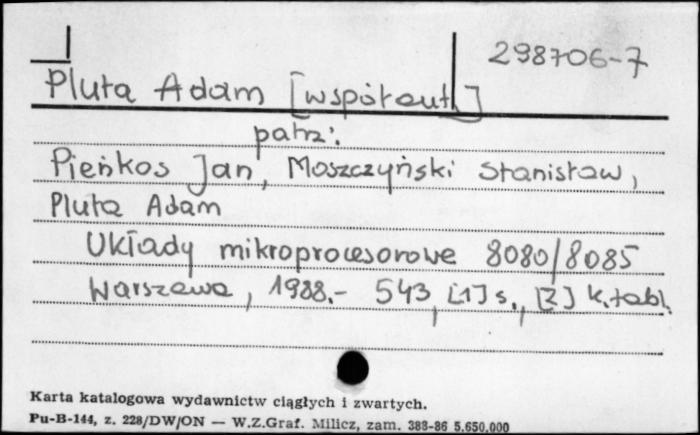 298706-7
Pluta Adam [współaut.]
patrz:
Pieńkos Jan, Moszczyński Stanisław,
Pluta Adam
Układy mikroprocesorowe 8080/8085
Warszawa, 1988.- 543, [1] s., [2] k.tabl.
Karta katalogowa wydawnictw ciągłych i zwartych.
Pu-B-144, z. 228/DW/ON — W.Z.Graf. Milicz, zam. 388-86 5.650.000